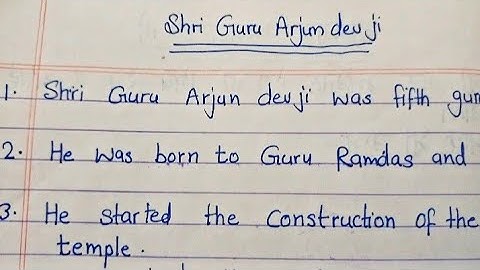 Shri Guru Arjun dev ji
1. Shri Guru Arjun dev ji was fifth
2. He was born to Guru Ramdas and
3. He started the Construction of the
temple.